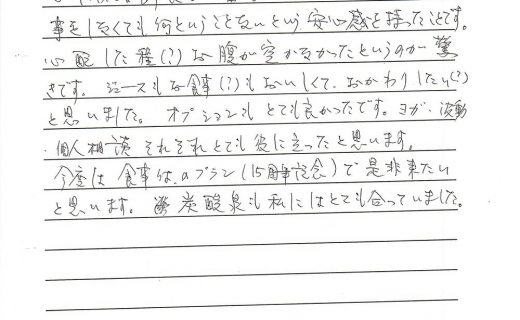 事をしなくても何ということないという安心感を持ったことです。
心配した程(?)お腹が空かなかったというのが驚
きです。ジュースもお食事(?)もおいしくて、おかわりしたい(?)
と思いました。オプションもとても良かったです。ヨガ、波動
、個人相談それぞれとても役に立ったと思います。
今度は食事付のプラン(15周年記念)で是非来たい
と思います。炭酸泉も私にはとても合っていました。